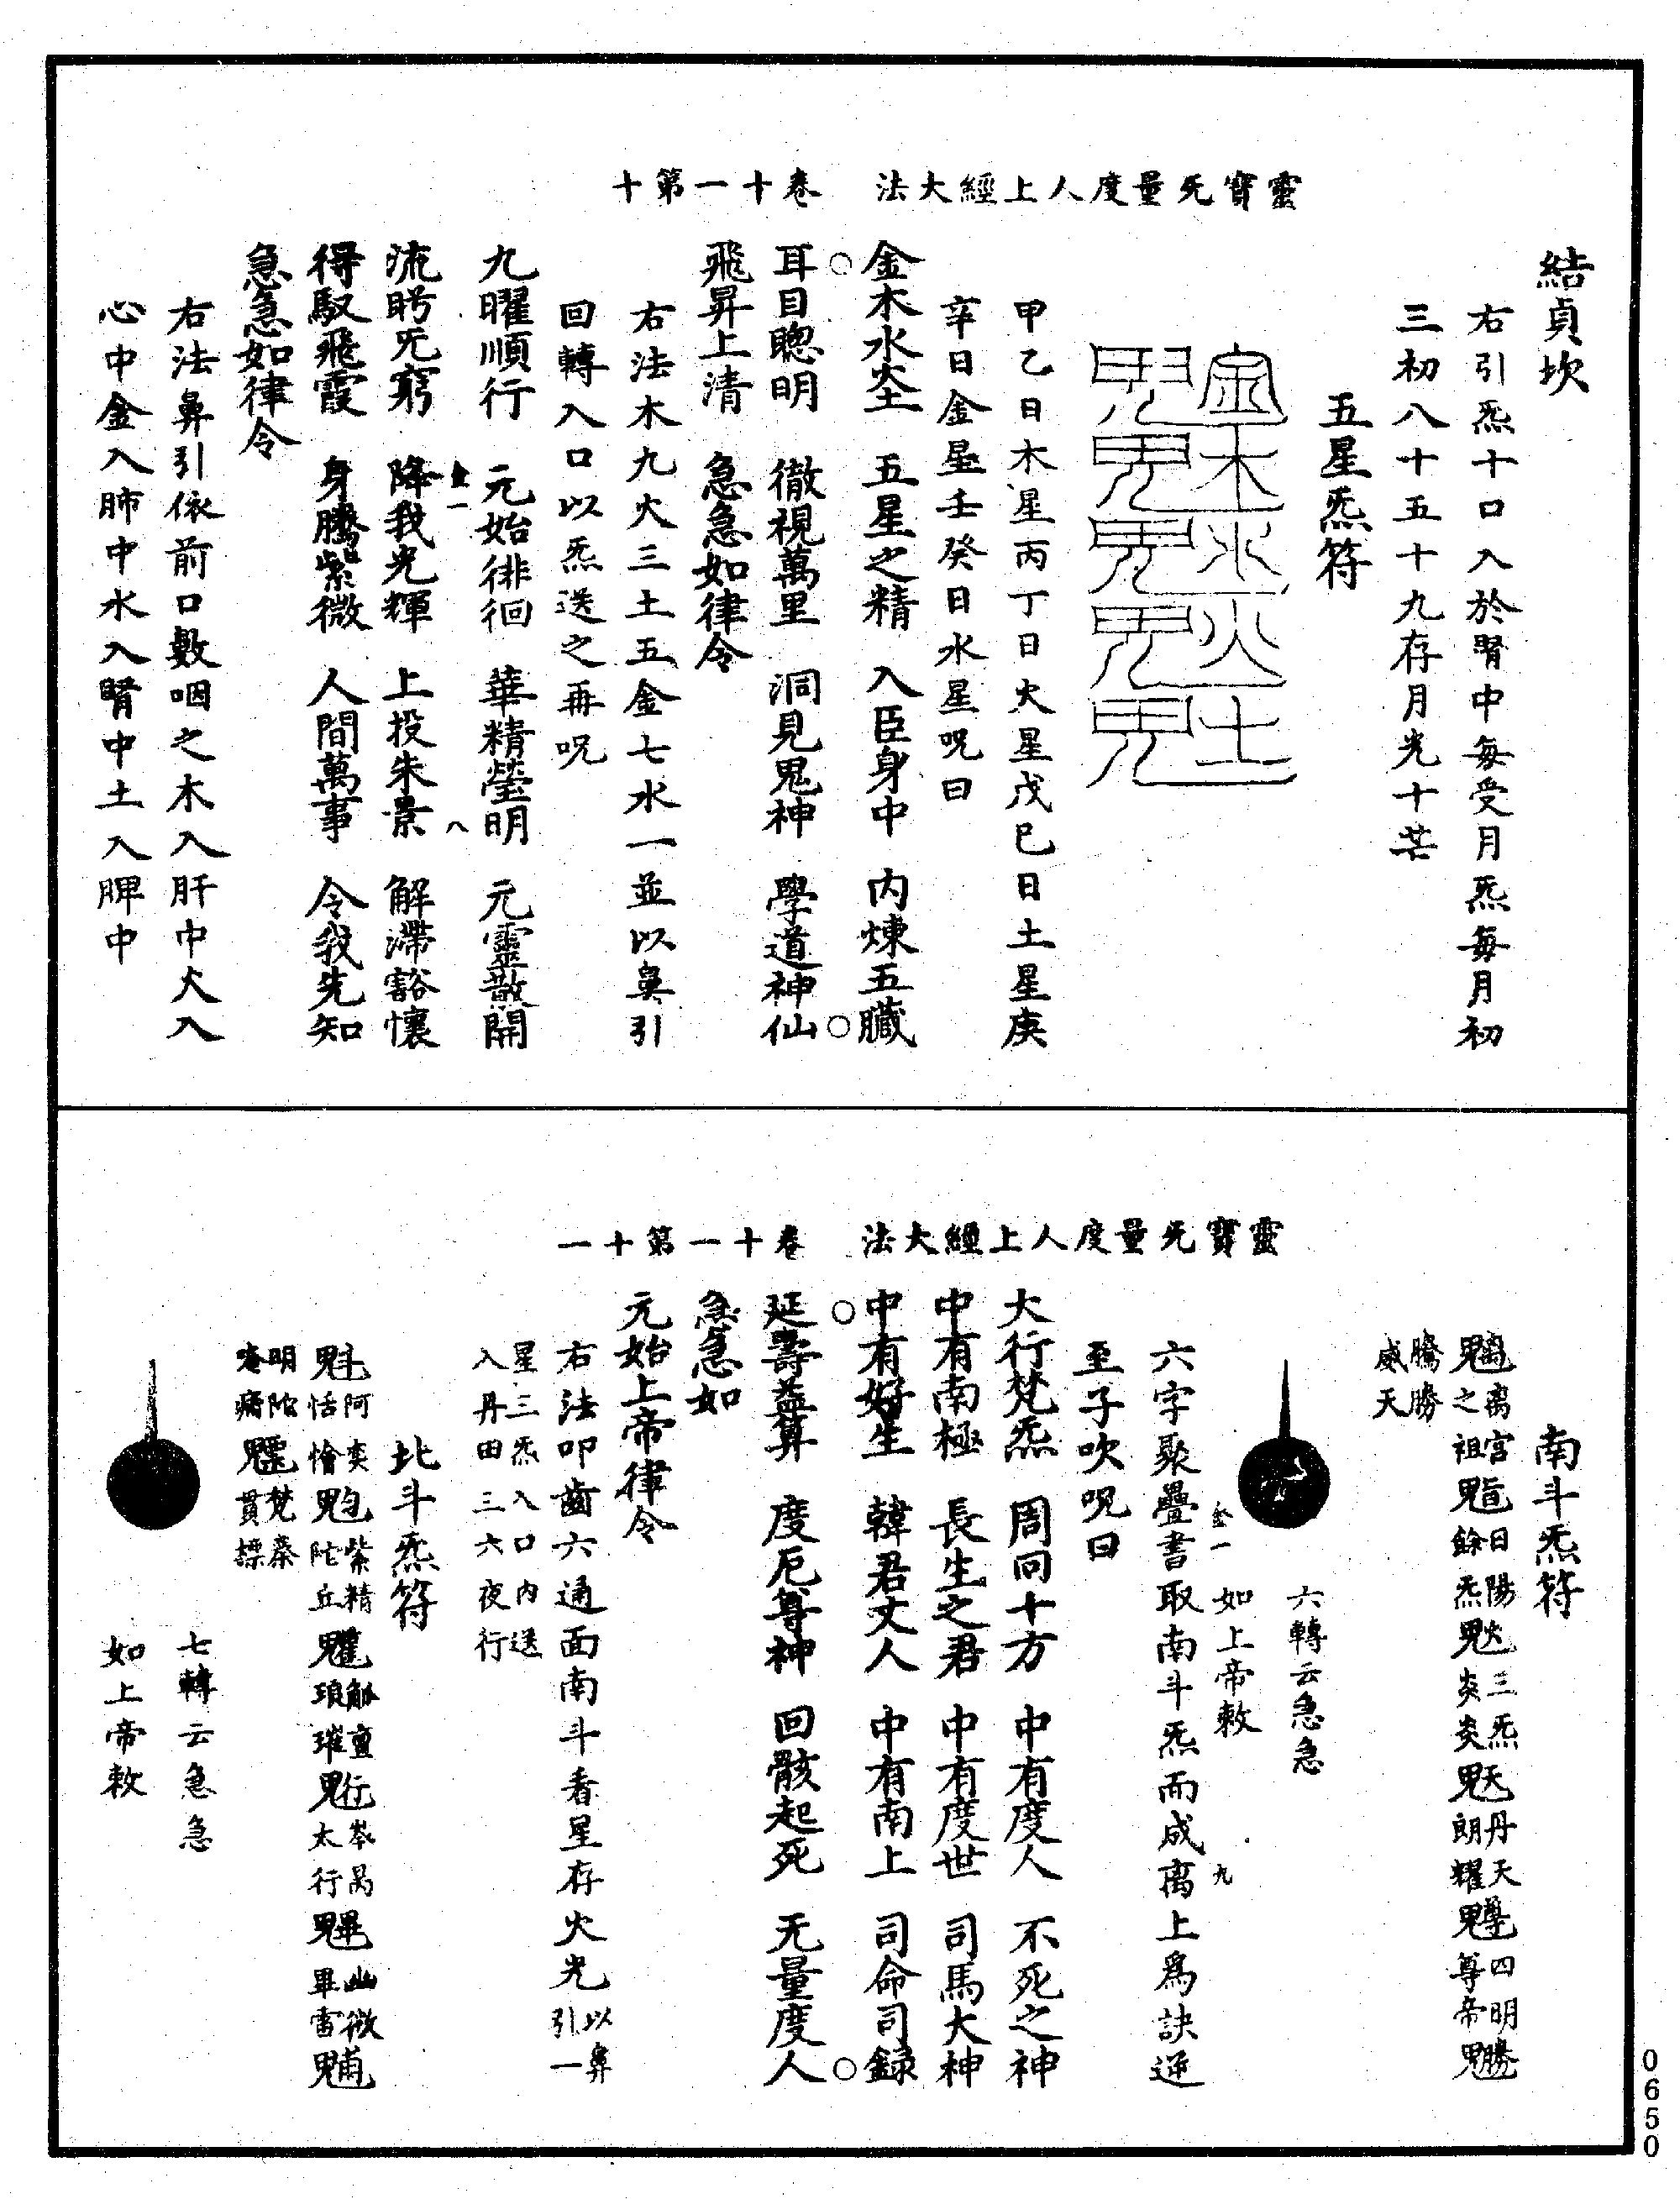 結貞坎
右引炁十口入於腎中每受月炁每月初
三初八十五十九存月光十芒
五星炁符
甲乙日木星丙丁日火星戊巳日土星庚
辛日金星壬癸日水星呪曰
金木水火土　五星之精　入臣身中　內煉五臟
耳目聰明　徹視萬里　洞見鬼神　學道神仙
飛昇上清　急急如律令
右法木九火三土五金七水一並以鼻引
回轉入口以炁送之再呪
九曜順行　元始徘徊　華精瑩明　元靈散開
流眄旡窮　降我光輝　上投朱景　解滯豁懷
得馭飛霞　身騰紫微　人間萬事　令我先知
急急如律令
右法鼻引依前口數咽之木入肝中火入
心中金入肺中水入腎中土入脾中
靈寳旡量度人上經大法　卷十一第十
金一　八
南斗炁符
离宮之祖
日陽餘炁
三炁炎炎
丹天朗耀
四明尊帝
騰勝
威天
六轉云急急
如上帝敕
六字聚疊書取南斗炁而成离上爲訣逆
至子吹呪曰
大行梵炁　周回十方　中有度人　不死之神
中有南極　長生之君　中有度世　司馬大神
中有好生　韓君丈人　中有南上　司命司録
延壽益算　度厄尊神　回骸起死　无量度人
急急如
元始上帝律令
右法叩齒六通面南斗看星存火光以鼻引一
星三炁入口内送
入丹田三六夜行
北斗炁符
阿奕恬愶
紫精陀丘
觚亶琅璀
太行
山微畢雷
明陀
梵
貫
七轉云急急
如上帝敕
靈寳旡量度人上經大法　卷十一第十一
金一　九
0650